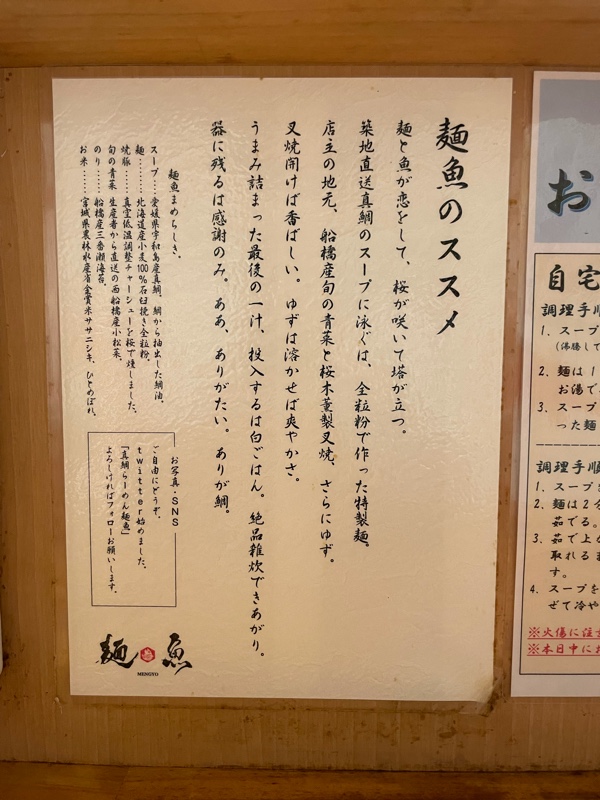 麺魚のススメ
麺と魚が恋をして、桜が咲いて塔が立つ。
築地直送真鯛のスープに泳ぐは、全粒粉で作った特製麺。
店主の地元、船橋産旬の青菜と桜木薫製叉焼、さらにゆず。
叉焼開けば香ばしい。ゆずは溶かせば爽やかさ。
うまみ詰まった最後の一汁、投入するは白ごはん。絶品雑炊できあがり。
器に残るは感謝のみ。ああ、ありがたい。ありが鯛。
麺魚まめちしき。
スープ……愛媛県宇和島産真鯛、鯛から抽出した鯛油。
麺……北海道産小麦100%石臼挽き全粒粉。
焼豚……真空低温調整チャーシューを桜で燻しました。
旬の青菜 生産者から直送の西船橋産小松菜。
のり……船橋産三番瀬海苔。
お米……宮城県農林水産省金賞米ササニシキ、ひとめぼれ。
お写真・SNS
ご自由にどうぞ。
twitter始めました。
「真鯛らーめん麺魚」
よろしければフォローお願いします。
麺魚
MENGYO
お
自宅
調理手順
1. スープ
(沸騰して
2. 麺は1
お湯で
3. スープ
った麺
調理手順
1. スープ
2. 麺は2分
茹でる。
3. 茹で上
取れるま
す。
4. スープを
ぜて冷や
※火傷に注
※本日中にお